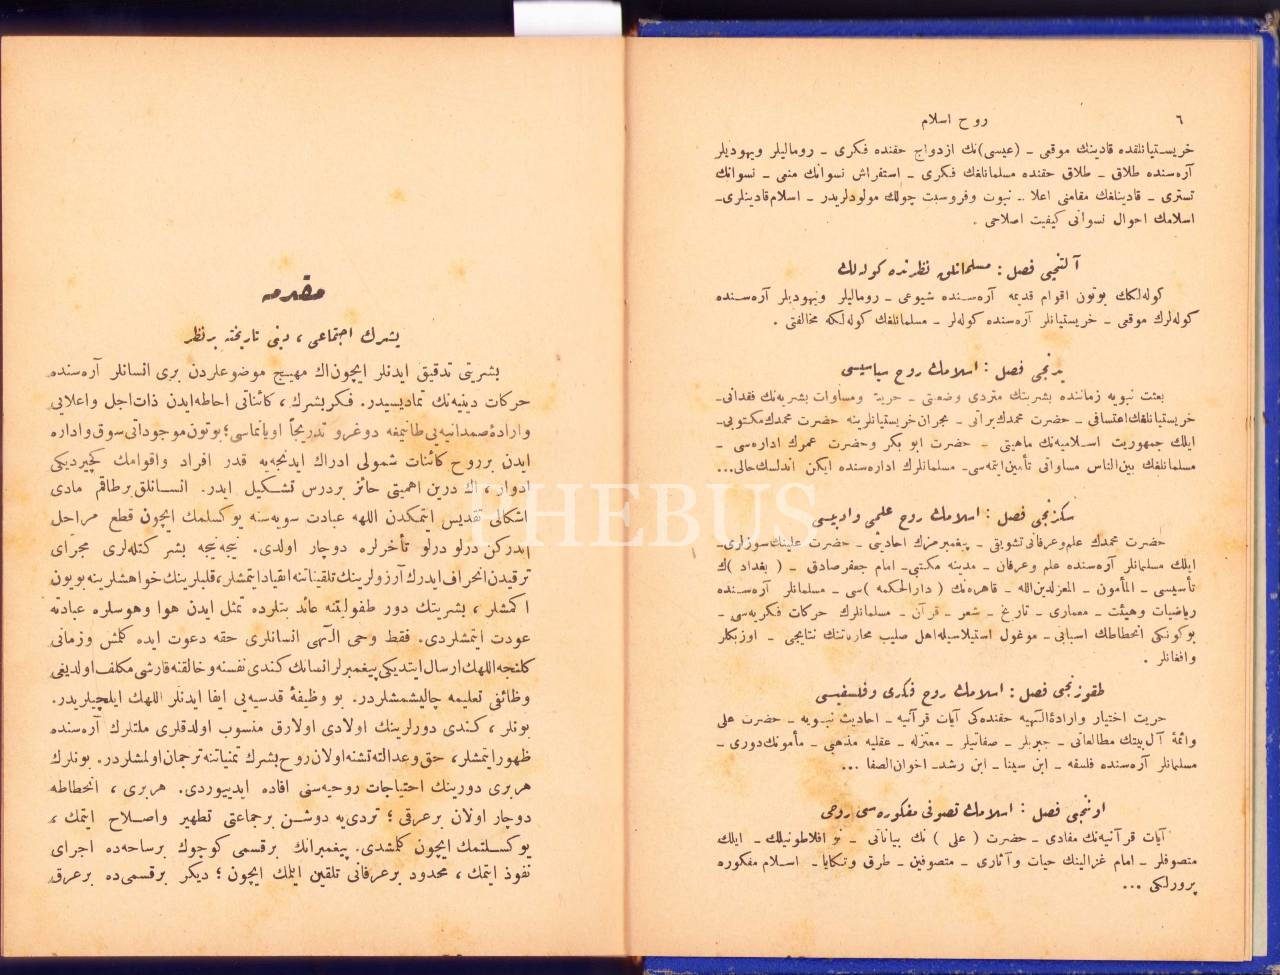 ٦
روح اسلام
خريستيانلقده قادينك موقعى ـ (عيسى)نك ازدواج حقنده فكرى ـ روماليلر ويهوديلر
آره‌سنده طلاق ـ طلاق حقنده مسلمانلغك فكرى ـ استفراش نسوانك منعى ـ نسوانك
تسترى ـ قادينلغك مقامنى اعلا ـ نبوت وفروسيت چوللك مولودلريدر ـ اسلام قادينلرى ـ
اسلامك احوال نسوانى كيفيت اصلاحى .
آلتنجى فصل : مسلمانلق نظرنده كوله‌لك
كوله‌لكك بوتون اقوام قديمه آره‌سنده شيوعى ـ روماليلر ويهوديلر آره‌سنده
كوله‌لرك موقعى ـ خريستيانلر آره‌سنده كوله‌لر ـ مسلمانلغك كوله‌لكه مخالفتى .
يدنجى فصل : اسلامك روح سياسيسى
بعثت نبويه زماننده بشريتك متردى وضعيتى ـ حريت ومساوات بشريه‌نك فقدانى ـ
خريستيانلغك اعتسافى ـ حضرت محمدك براتى ـ نجران خريستيانلرينه حضرت محمدك مكتوبى ـ
ايلك جمهوريت اسلاميه‌نك ماهيتى ـ حضرت ابو بكر وحضرت عمرك اداره‌سى ـ
مسلمانلغك بين‌الناس مساواتى تأمين ايتمه‌سى ـ مسلمانلرك اداره‌سنده ايكن اندلسك حالى...
سكزنجى فصل : اسلامك روح علمى وادبيسى
حضرت محمدك علم وعرفانى تشويقى ـ پيغمبرمزك احاديثى ـ حضرت علينك سوزلرى ـ
ايلك مسلمانلر آره‌سنده علم وعرفان ـ مدينه مكتبى ـ امام جعفر صادق ـ ( بغداد )ك
تأسيسى ـ المأمون ـ المعزلدين‌الله ـ قاهره‌نك ( دارالحكمه )سى ـ مسلمانلر آره‌سنده
رياضيات وهيئت ـ معمارى ـ تاريخ ـ شعر ـ قرآن ـ مسلمانلرك حركات فكريه‌سى ـ
بوكونكى انحطاطك اسبابى ـ موغول استيلاسيله اهل صليب محارباتنك نتايجى ـ اوزبكلر
وافغانلر .
طقوزنجى فصل : اسلامك روح فكرى وفلسفيسى
حريت اختيار وارادهٔ‌الٓهيه حقنده‌كى آيات قرآنيه ـ احاديث نبويه ـ حضرت على
وائمهٔ آل‌بيتك مطالعاتى ـ جبريلر ـ صفاتيلر ـ معتزله ـ عقليه مذهبى ـ مأمونك دورى ـ
مسلمانلر آره‌سنده فلسفه ـ ابن سينا ـ ابن رشد ـ اخوان‌الصفا ...
اوننجى فصل : اسلامك تصوفى مفكوره‌سى روحى
آيات قرآنيه‌نك مفادى ـ حضرت ( على ) نك بياناتى ـ نو افلاطونيلك ـ ايلك
متصوفلر ـ امام غزالينك حيات وآثارى ـ متصوفين ـ طرق وتكايا ـ اسلام مفكوره
پرورلكى ...
مقدمه
بشرك اجتماعى ، دينى تاريخنه برنظر
بشريتى تدقيق ايدنلر ايچون اك مهيج موضوعلردن برى انسانلر آره‌سنده
حركات دينيه‌نك تماديسيدر. فكر بشرك ، كائناتى احاطه ايدن ذات اجل واعلايى
وارادهٔ صمدانيه‌يى طانيمغه دوغرو تدريجاً اويانماسى ؛ بوتون موجوداتى سوق واداره
ايدن برروح كائنات شمولى ادراك ايدنجه‌يه قدر افراد واقوامك كچيرديكى
ادوار ، اك درين اهميتى حائز بردرس تشكيل ايدر. انسانلق برطاقم مادى
اشكالى تقديس ايتمكدن اللهه عبادت سويه‌سنه يوكسلمك ايچون قطع مراحل
ايدركن درلو درلو تأخرلره دوچار اولدى. نيجه نيجه بشر كتله‌لرى مجراى
ترقيدن انحراف ايدرك آرزولرينك تلقيناتنه انقياد ايتمشلر ، قلبلرينك خواهشلرينه بويون
اكمشلر ، بشريتك دور طفوليتنه عائد بتلرده تمثل ايدن هوا وهوسلره عبادته
عودت ايتمشلردى. فقط وحى الٓهى انسانلرى حقه دعوت ايده كلمش وزمانى
كلنجه اللهك ارسال ايتديكى پيغمبرلر انسانك كندى نفسنه وخالقنه قارشى مكلف اولديغى
وظائفى تعليمه چاليشمشلردر. بو وظيفهٔ قدسيه‌يى ايفا ايدنلر اللهك ايلچيلريدر.
بونلر ، كندى دورلرينك اولادى اولارق منسوب اولدقلرى ملتلرك آره‌سنده
ظهور ايتمشلر ، حق وعدالته تشنه اولان روح بشرك تمنياتنه ترجمان اولمشلردر. بونلرك
هربرى دورينك احتياجات روحيه‌سنى افاده ايدييوردى. هربرى ، انحطاطه
دوچار اولان برعرقى ؛ تردى‌يه دوشن برجماعتى تطهير واصلاح ايتمك ،
يوكسلتمك ايچون كلمشدى. پيغمبرانك برقسمى كوچوك برساحه‌ده اجراى
نفوذ ايتمك ، محدود برعرفانى تلقين ايتمك ايچون ؛ ديكر برقسمى‌ده برعرق
PHEBUS